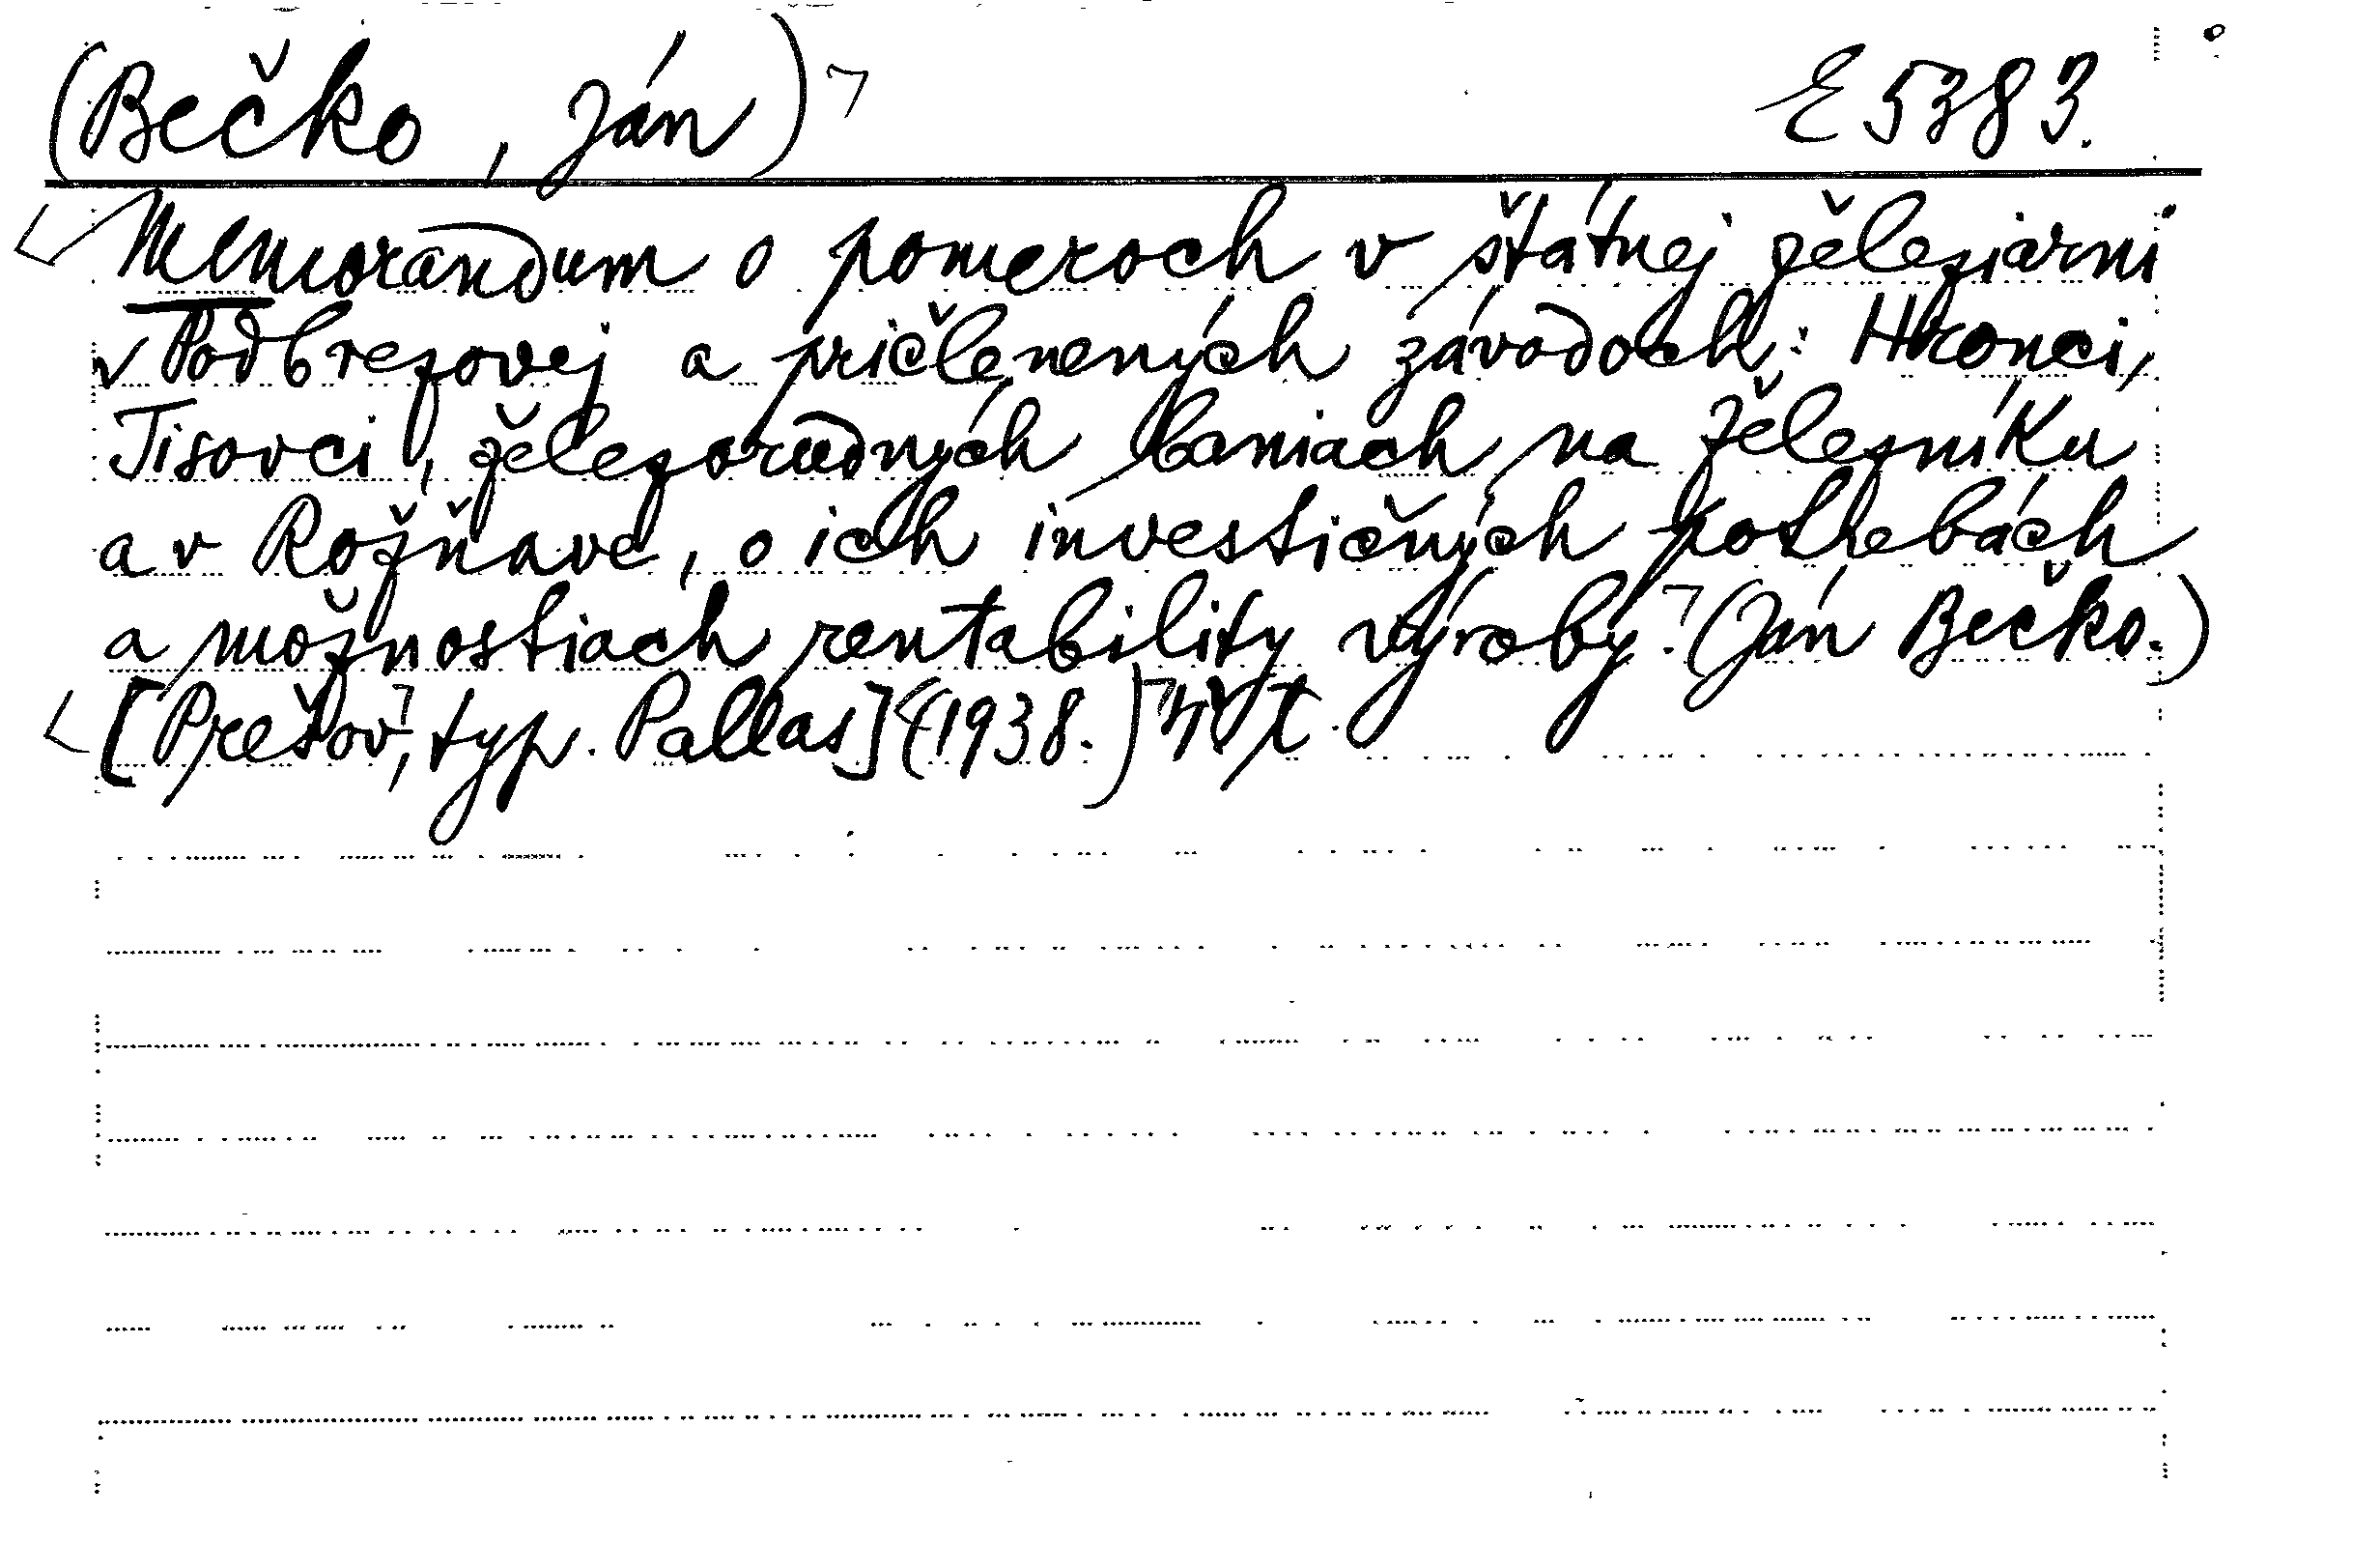 (Bečko, Ján) E 5383.
Memorandum o pomeroch v štátnej železiarni
v Podbrezovej a pričlenených závodoch: Hronci,
Tisovci, železorudných baniach, na Železníku
a v Rožňave, o ich investičných potrebách
a možnostiach rentability výroby. (Ján Bečko.)
[Prešov, typ. Pallas] (1938.)